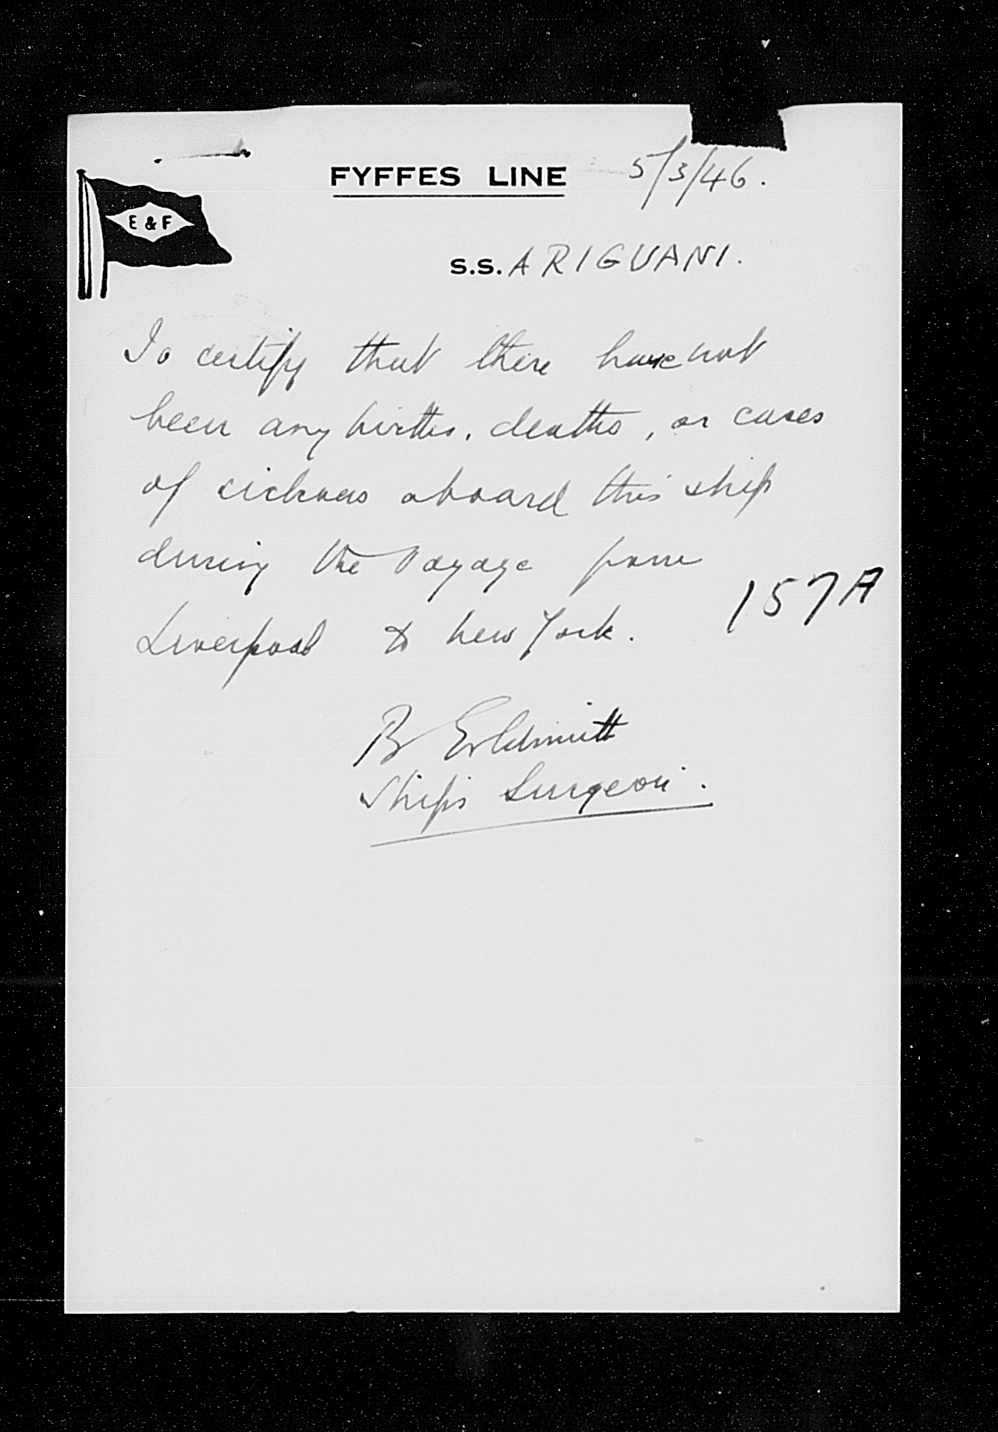 FYFFES LINE 5/3/46.
E & F
S.S. ARIGUANI.
To certify that there have not
been any births, deaths, or cases
of sickness aboard this ship
during the Voyage from
Liverpool to New York.
157A
B Goldsmith
Ship's Surgeon.